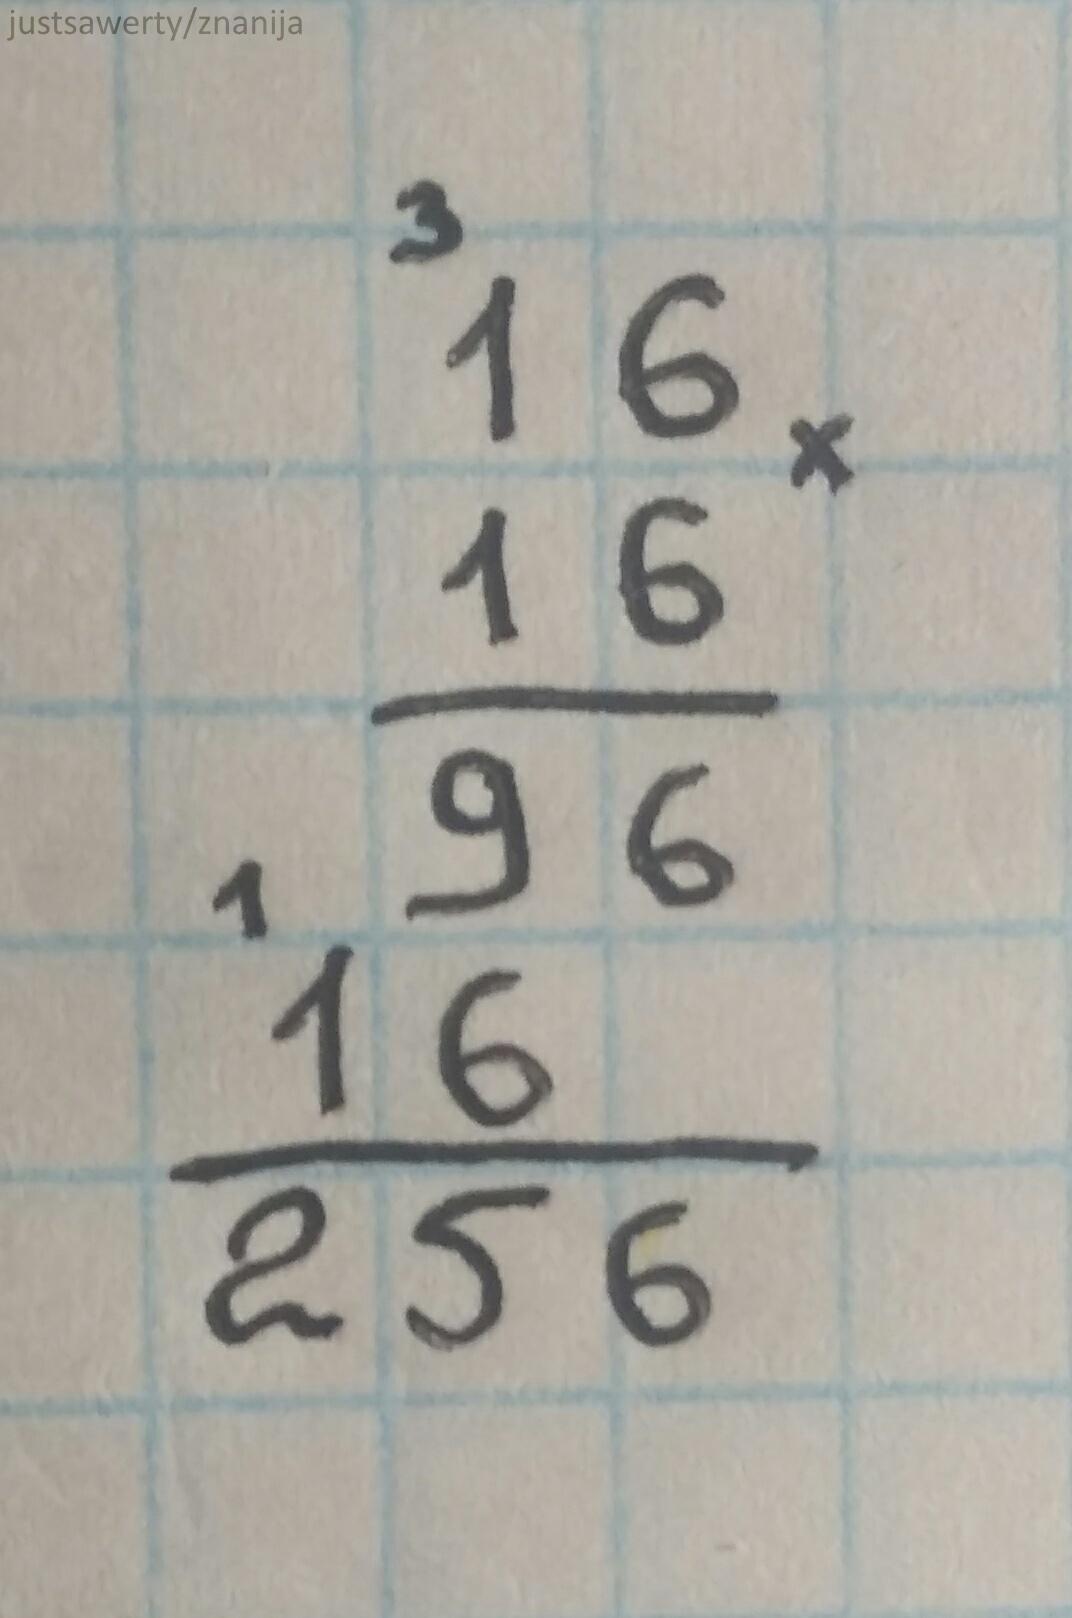 justsawerty/znanija
3
16
x
16
96
1
16
256